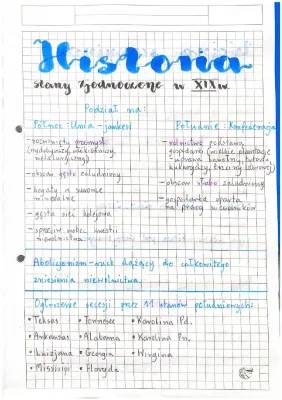 Historia
stany zjednoczone w XIX w.
Podział na:
Północ: Unia - jankesi
- rozwinięty przemysł
metalurgiczny)
- obszar gęsto zaludniony
- bogaty w surowce
mineralne
- gęsta sieć kolejowa
- sprzeciw wobec kwestii
niewolnictwa
Południe: Konfederacja
- rolnictwo podstawą
gospodarki (wielkie plantacje
- uprawa bawełny, tytoniu,
kukurydzy, trzciny cukrowej)
- obszar słabo zaludniony
- gospodarka oparta
na pracy niewolników
Abolicjonizm - ruch dążący do całkowitego
zniesienia niewolnictwa.
Ogłoszenie secesji przez 11 stanów południowych:
• Teksas • Tennesee • Karolina Pd.
• Arkansas • Alabama • Karolina Pn.
• Luizjana • Georgia • Wirginia
• Missisipi • Floryda